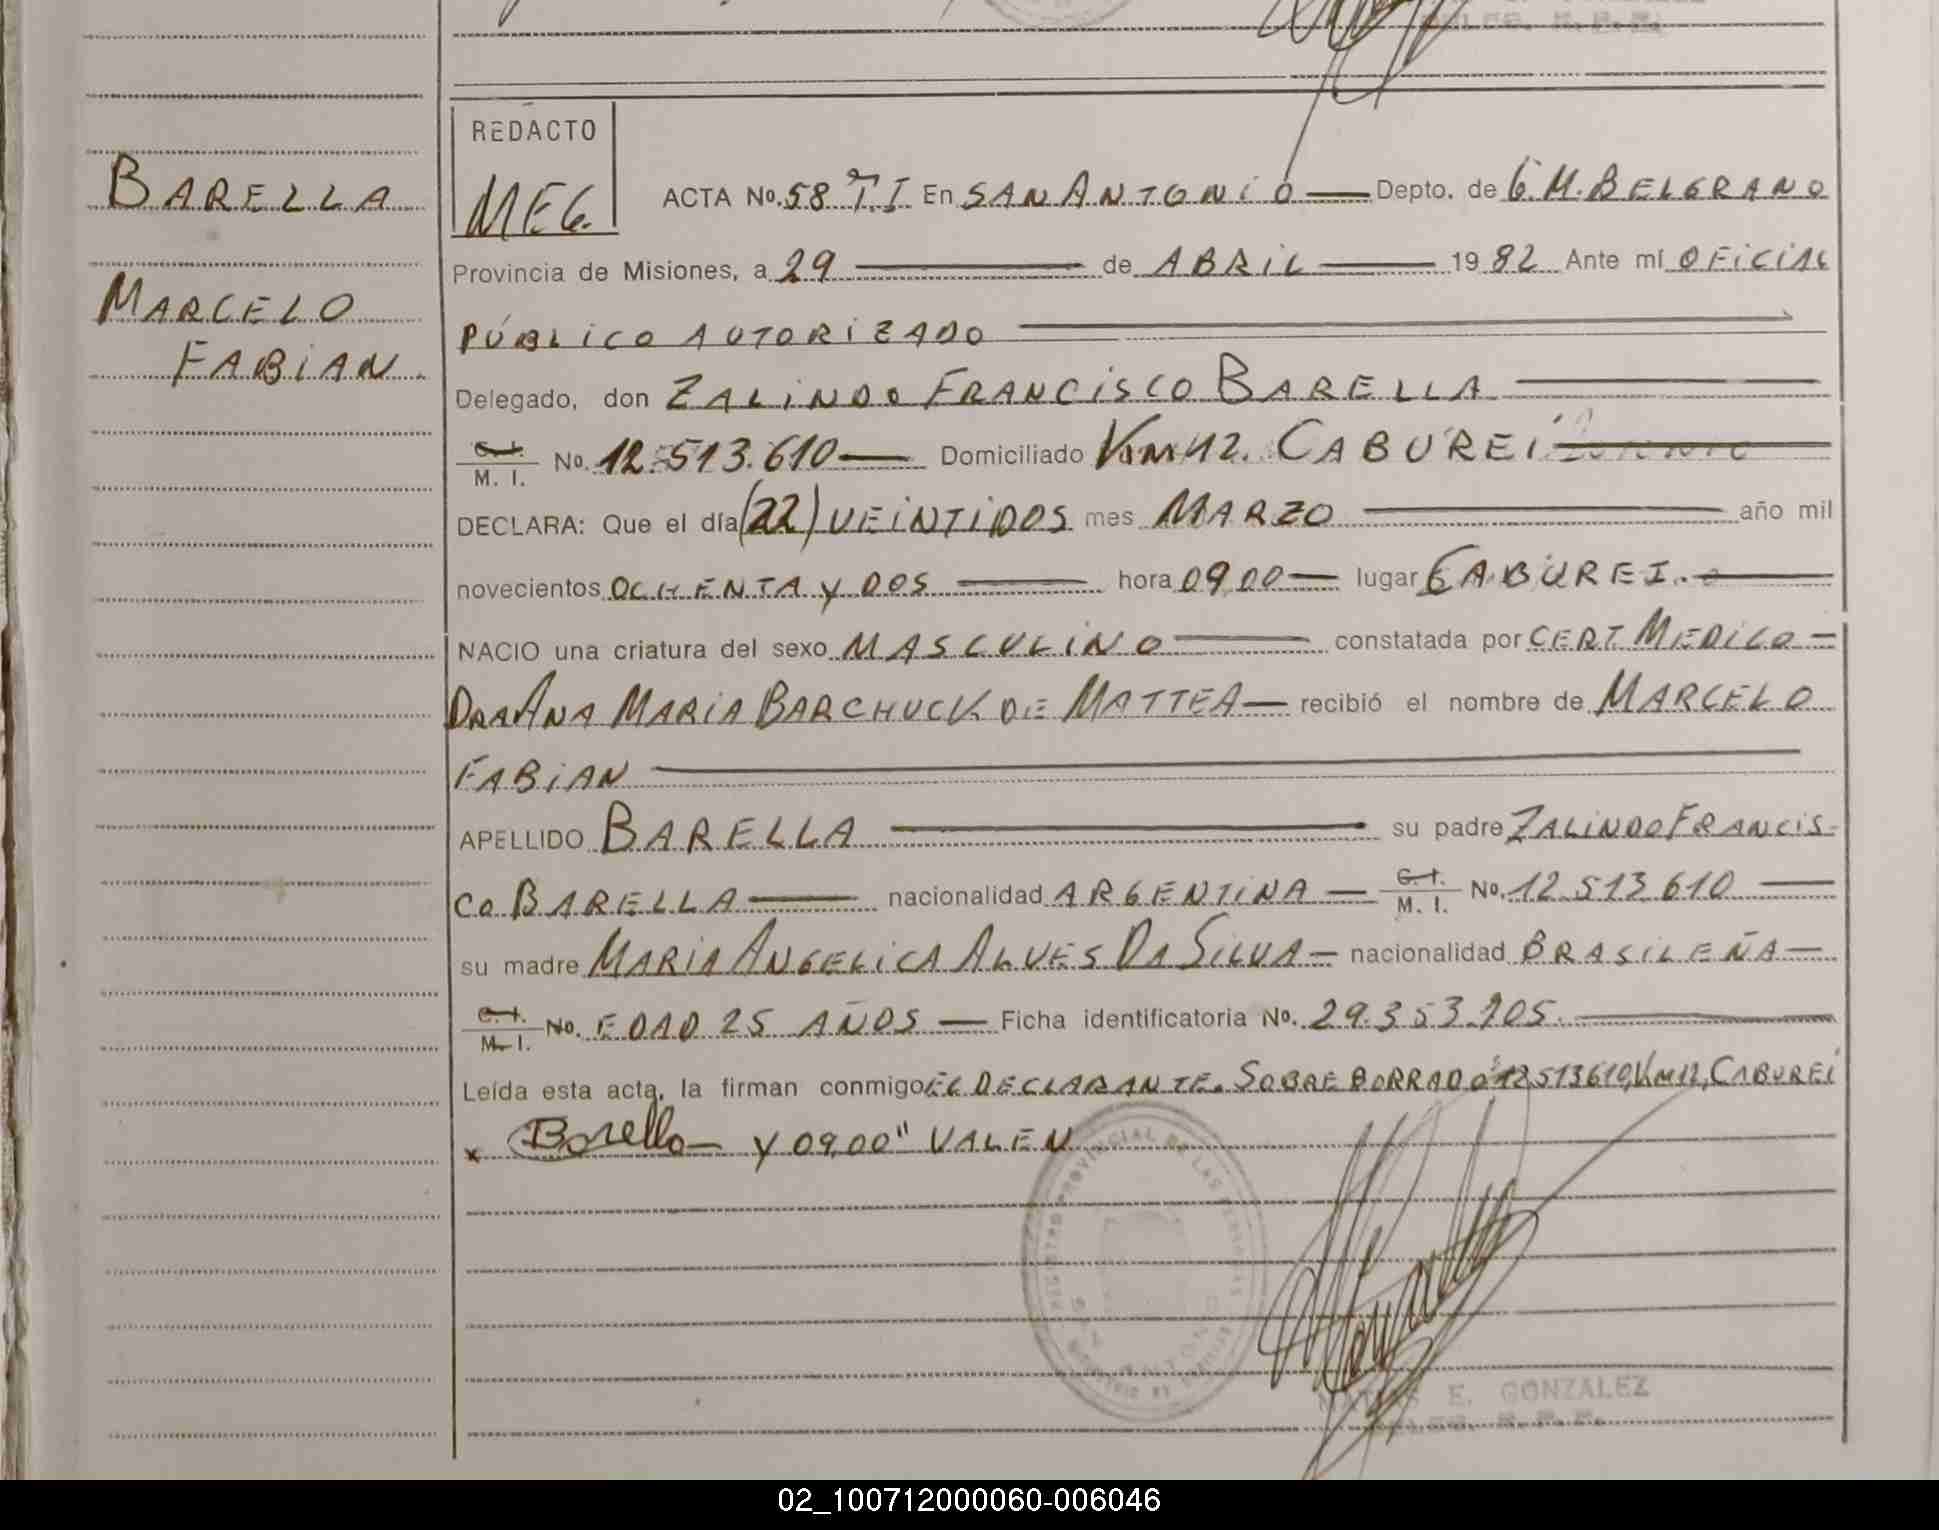 BARELLA
MARCELO
FABIAN
REDACTO
MEG.
ACTA No. 58 T.I En SAN ANTONIO Depto. de G.M. BELGRANO
Provincia de Misiones, a 29 de ABRIL 1982 Ante mí OFICIAL
PÚBLICO AUTORIZADO
Delegado, don ZALINDO FRANCISCO BARELLA
C. I. M. I. No. 12.513.610 Domiciliado Km 12. CABUREI
DECLARA: Que el día (22) VEINTIDOS mes MARZO año mil
novecientos OCHENTA y DOS hora 09,00 lugar CABUREI.
NACIO una criatura del sexo MASCULINO constatada por CERT. MEDICO
DRA ANA MARIA BARCHUCK DE MATTEA recibió el nombre de MARCELO
FABIAN
APELLIDO BARELLA su padre ZALINDO FRANCIS-
CO BARELLA nacionalidad ARGENTINA C. I. M. I. No. 12.513.610
su madre MARIA ANGELICA ALVES DA SILVA nacionalidad BRASILEÑA
C. I. M. I. No. EDAD 25 AÑOS Ficha identificatoria No. 29.353.705.
Leída esta acta, la firman conmigo EL DECLARANTE. SOBRE BORRADO "12513610, Km 12, CABUREI
x Barella y 09,00" VALEN
REGISTRO PROVINCIAL DE LAS PERSONAS
E. GONZALEZ
02_100712000060-006046